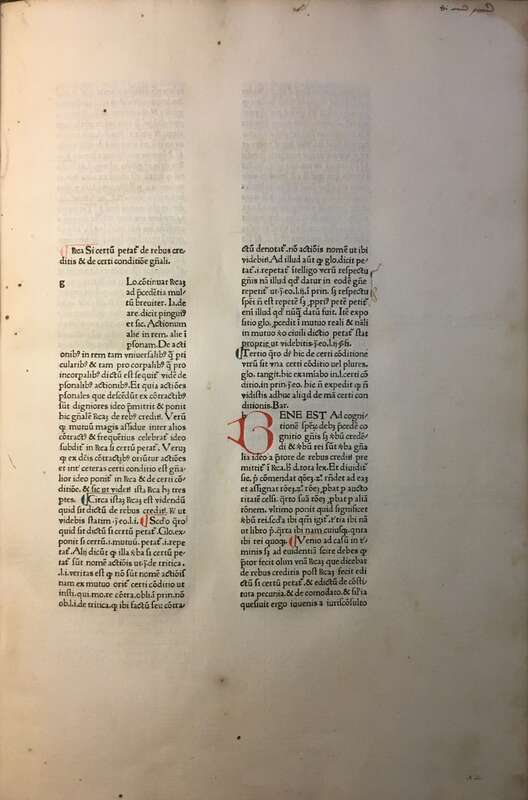 Rca Si certũ petat᷑ de rebus cre-
ditis & de certi conditiõe gñali.
g Lo. cõtinuat Rcã
ad p̃cẽdẽtia mul-
tũ breuiter. Ia. de
are. dicit pinguiꝰ
et sic. Actionum
alie in rem. alie ĩ
psonam. De acti
onibꝰ in rem tam vniuersalibꝰ q̃ pti
cularibꝰ & tam pro corpalibꝰ q̃ pro
incorpalibꝰ dictũ est sequit᷑ vidẽ de
psonalibꝰ actionibꝰ. Et quia actiões
psonales que descẽdũt ex cõtractibꝰ
sũt digniores ideo p̃mittit & ponit
hic gñalẽ Rcã de rebꝰ credit᷑. Verũ
qꝫ mutuũ magis assidue inter alios
cõtractꝰ & frequẽtius celebrat᷑ ideo
subdit in Rca si certũ petat᷑. Verũ
qꝫ ex dc̃is cõtractibꝰ oriũtur actiões
et int᷑ ceteras certi conditio est gña-
lior ideo ponit᷑ in Rca & de certi cõ-
ditiõe. & sic ut videt᷑ ista Rca hꝫ tres
ptes. Circa istã Rcã est videndũ
quid sit dictũ de rebus credit᷑. &
videbis statim j̃. eo. l. i. Scd̃o q̃ro
quid sit dictũ si certũ petat᷑. Glo. ex-
ponit si certũ. i. mutuũ. petat᷑. i. repe
tat᷑. Alij dicũt qꝫ illa ꝟba si certũ pe-
tat᷑ sũt nomẽ actiõis ut j̃. de tritica.
l. i. veritas est qꝫ nõ sũt nomẽ actiõis
nam ex mutuo orit᷑ certi cõditio ut
insti. qui. mo. re cõtra. obli. ĩ prin. nõ
ob. l. i. de tritica. qꝫ ibi factũ seu cõtra
ctũ denotat᷑. nõ actiõis nomẽ ut ibi
videbit᷑. Ad illud aũt qꝫ glo. dicit pe-
tat᷑. i. repetat᷑ ĩtelligo verũ respectu
gñis nã illud qd̃ datur in eodẽ gñe
repetit᷑ ut j̃. eo. l. ij. ĩ prin. sꝫ respectu
spẽi ñ est repetẽ sꝫ ꝓpriꝰ petẽ petit᷑
eni illud qd̃ nũq̃ datũ fuit. Itẽ expo
sitio glo. ꝓcedit ĩ mutuo reali & nãli
in mutuo ꝟo ciuili dictio petat᷑ stat
ꝓprie ut videbitis j̃. eo. l.
Tertio q̃ro de hic de certi cõditione
vtrũ sit vna certi cõditio uel plures.
glo. tangit. hic examĩabo in. l. certi cõ
ditio. in prin. j̃. eo. hic ñ expedit qꝫ ñ
vidistis adhuc aliqd de mã certi con
ditionis. Bar.
BENE EST Ad cogni-
tionẽ spẽꝝ debꝫ p̃cedẽ co
gnitio gñis sꝫ ꝟbũ crede-
di & ꝟbũ rei sũt ꝟba gña
lia ideo a p̃tore de rebus credit᷑ pre
mittit᷑ ĩ Rca. H. d. tota lex. Et diuidit᷑
sic. p̃ comendat q̃õeꝫ. 2º rñdet ad eã
et assignat rõeꝫ. 2º rõeꝫ. pbat p aucto
ritatẽ celsi. q̃rto suã rõeꝫ. pbat p aliã
rõnem. vltimo ponit quid significet
ꝟbũ rei. scd̃a ibi qm̃ igit᷑. 3ª ibi nã
ut libro p̃. q̃rta ibi nam cuiusqꝫ. qnta
ibi rei quoqꝫ. Venio ad casũ in t᷑-
minis sꝫ ad euidentiã scire debes qꝫ
p̃tor fecit olim vnã Rcã que dicebat᷑
de rebus creditis post Rcã fecit edi
ctũ si certũ petat᷑. & edictũ de cõsti-
tuta pecunia. & de comodato. & sil᷑ia
quesiuit ergo iuuenis a iurisconsulto